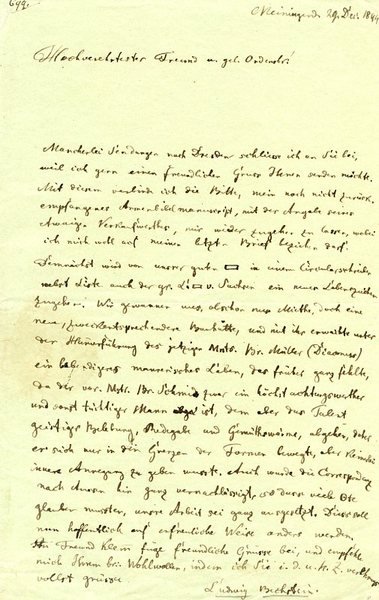 Meiningen d. 29. Dec. 1844
Hochverehrtester Freund u. gel. Ordensbr.
Mancherlei Sendungen nach Dresden schliesse ich an Sie bei,
weil ich gern einen freundlichen Gruss Ihnen senden möchte.
Mit diesem verbinde ich die Bitte, mein noch nicht zurück
empfangenes manuscript, mit der Angabe seines
etwaigen, mir wieder zugehen zu lassen, wobei
ich mich wohl auf meinen letzten Brief beziehen darf.
Demnächst wird von unsrer guten ▭ in einem Circularschreiben
nebst Liste auch der gr. L▭ v. Sachsen ein neues Lebenszeichen
zugehen. Wir gewannen uns, obschon mit Mühe, doch eine
neue, zweckentsprechendere Bauhütte, und mit ihr erwachte unter
der Hammerführung des jetzigen Mstr. Br. Müller (Diaconus)
ein lebendiges maurerisches Leben, das früher ganz fehlte,
da der vor. Mstr. Br. Schmid zwar ein höchst achtungswerther
und sonst tüchtiger Mann ist, dem aber das Talent
geistiger Belebung, Redegabe und Gemüthswärme, abgehen, daher
er sich nur in den Grenzen der Formen bewegt, aber keinerlei
innere Anregung zu geben wusste. Auch wurde die Correspondenz
nach Aussen hin ganz vernachlässigt, so dass viele
glauben mussten, unsre Arbeit sei ganz ausgesetzt. Dies soll
nun hoffentlich auf erfreuliche Weise anders werden.
Freund Klem füge freundliche Grüsse bei, und empfehle
mich Ihrem Wohlwollen, indem ich Sie i. d. u. h. Z.
vollst grüsse
Ludwig Bechstein.